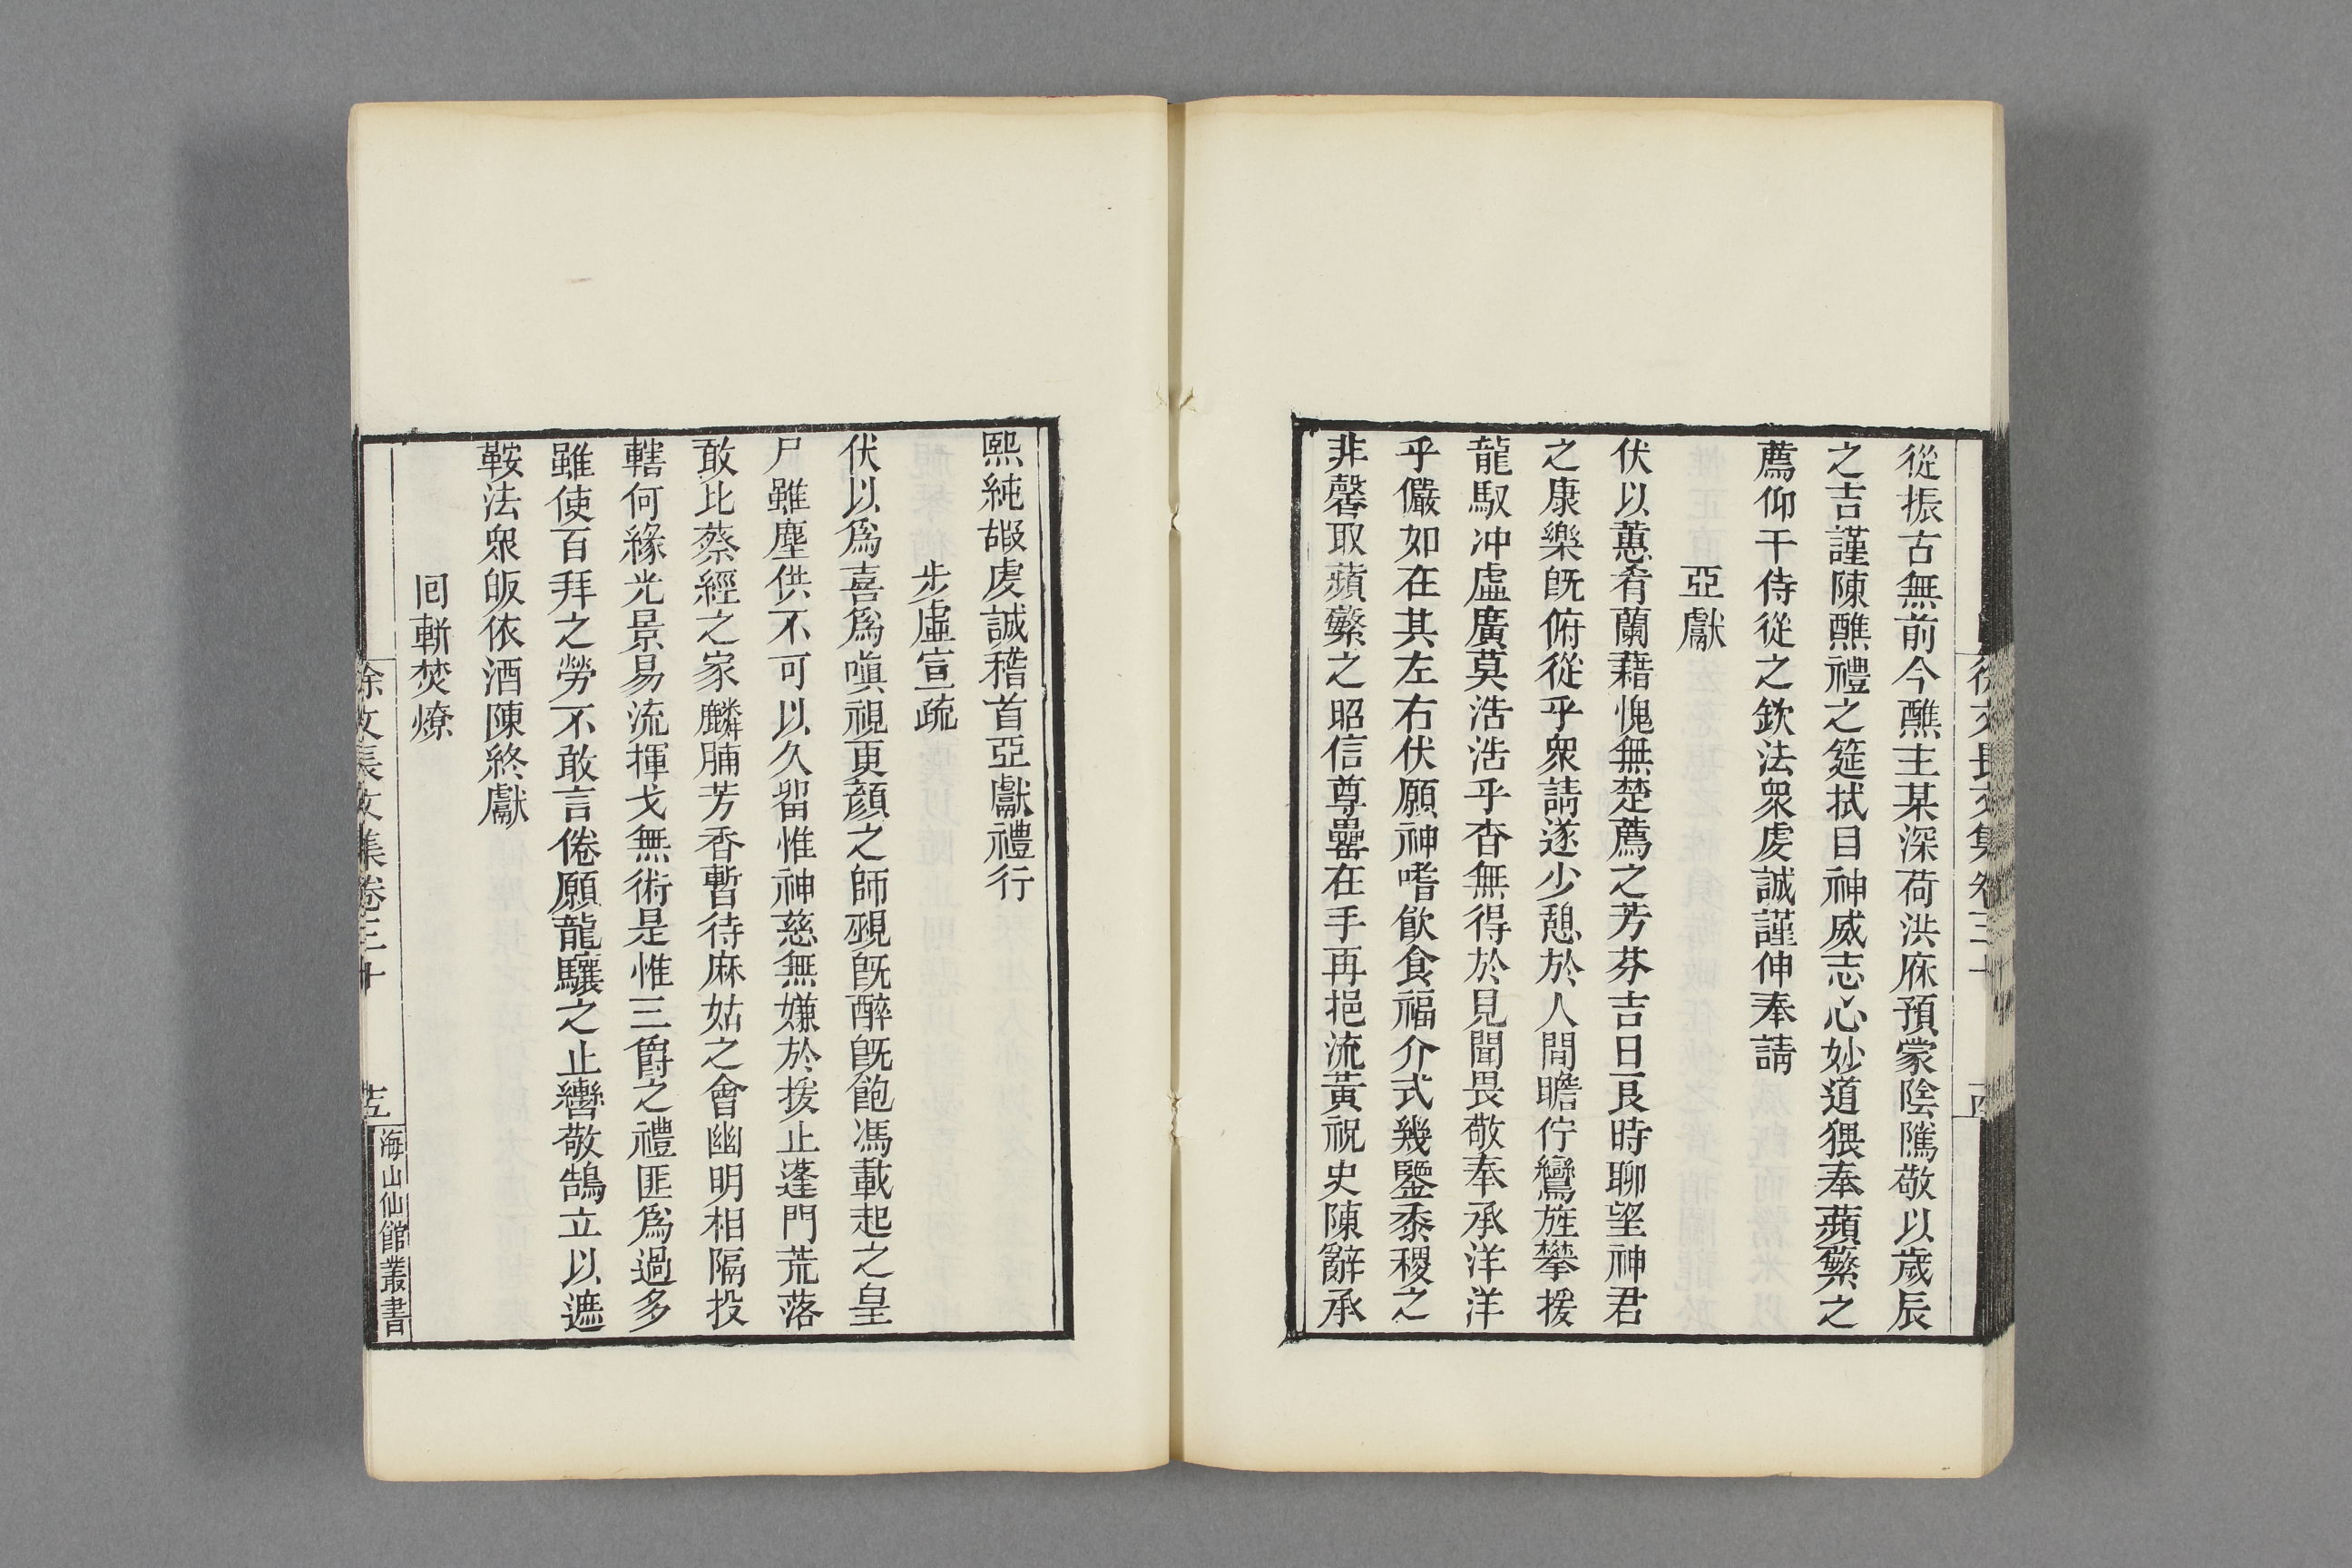 從振古無前今醮主某深荷洪庥預蒙陰隲敬以歲辰
之吉謹陳醮禮之筵拭目神威志心妙道猥奉蘋蘩之
薦仰干侍從之欽法衆虔誠謹伸奉請
亞獻
伏以蕙肴蘭藉愧無楚薦之芳芬吉日良時聊望神君
之康樂旣俯從乎衆請遂少憩於人間瞻佇鸞旌攀援
龍馭冲虛廣莫浩浩乎杳無得於見聞畏敬奉承洋洋
乎儼如在其左右伏願神嗜飮食福介式幾鑒黍稷之
非馨取蘋蘩之昭信尊罍在手再挹流黃祝史陳辭承
熙純嘏虔誠稽首亞獻禮行
步虛宣疏
伏以爲喜爲嗔視更顏之師覡旣醉旣飽馮載起之皇
尸雖塵供不可以久留惟神慈無嫌於援止蓬門荒落
敢比蔡經之家麟脯芳香暫待麻姑之會幽明相隔投
轄何緣光景易流揮戈無術是惟三爵之禮匪爲過多
雖使百拜之勞不敢言倦願龍驤之止轡敬鵠立以遮
鞍法衆皈依酒陳終獻
囘斬焚燎
徐文長文集卷三十
十五
海山仙館叢書